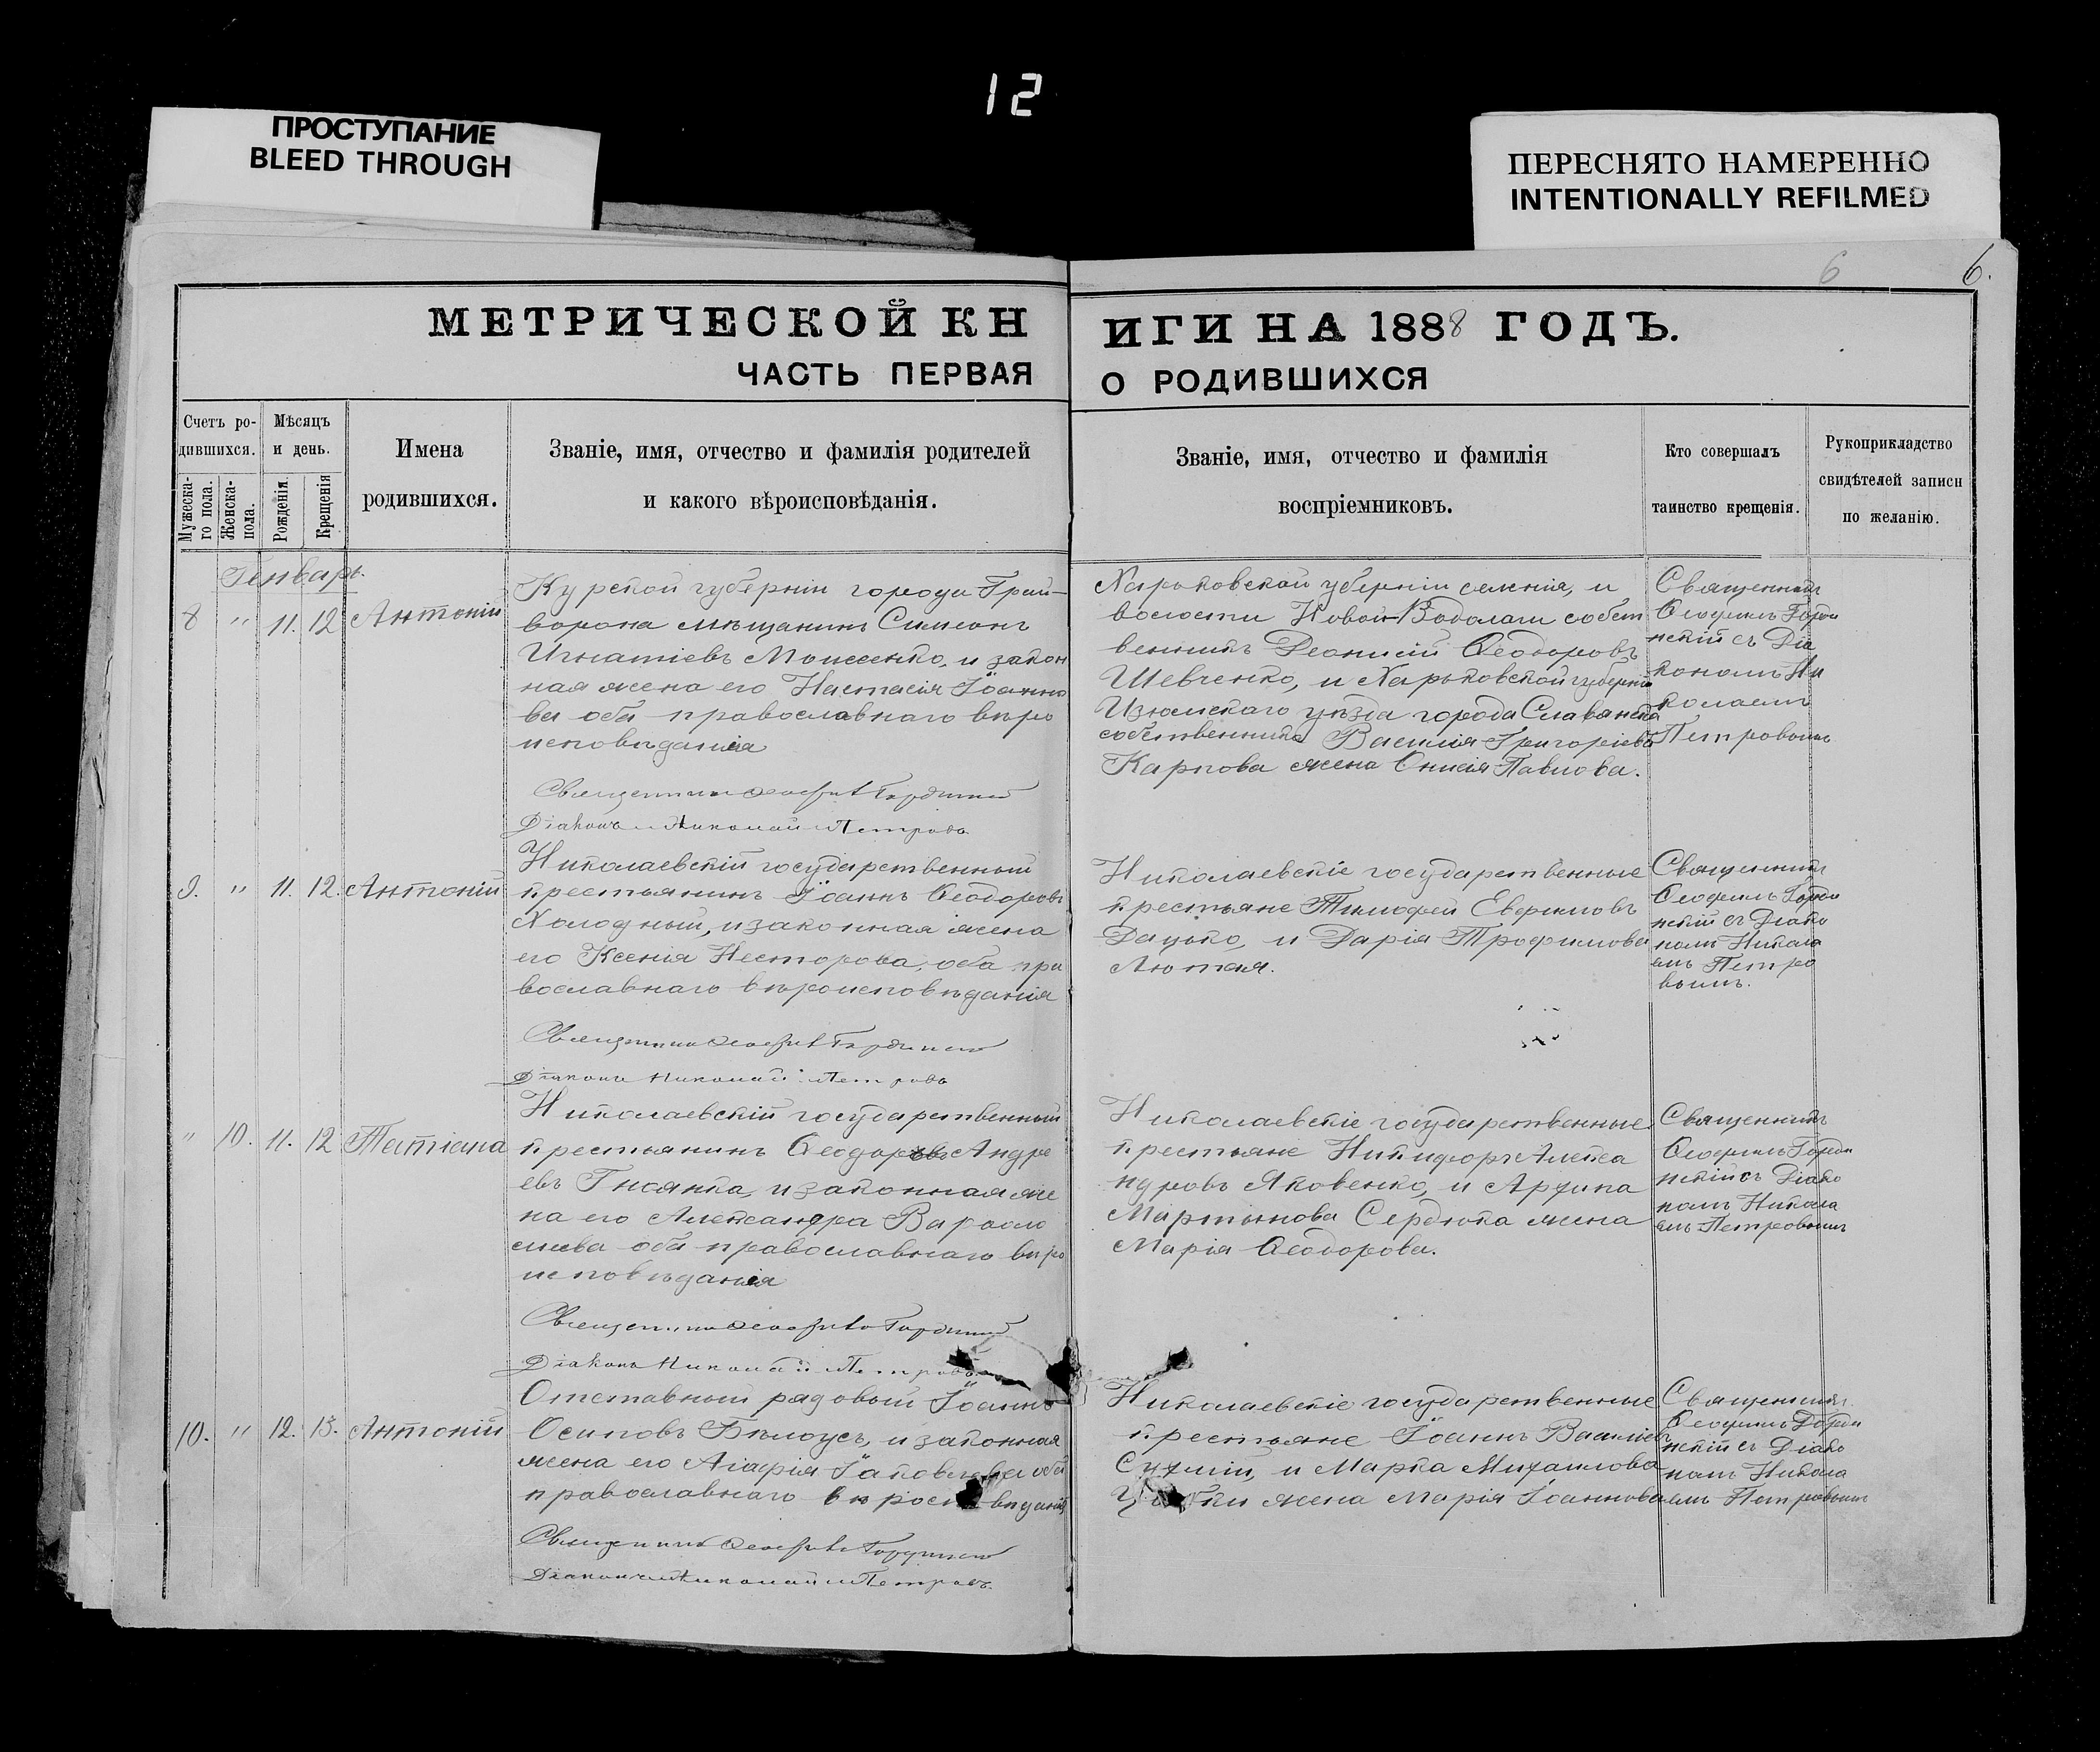 12
ПРОСТУПАНИЕ
BLEED THROUGH
ПЕРЕСНЯТО НАМЕРЕННО
INTENTIONALLY REFILMED
6 6.
МЕТРИЧЕСКОЙ КН
ИГИ НА 1888 ГОДЪ.
ЧАСТЬ ПЕРВАЯ
О РОДИВШИХСЯ
Счетъ ро-
дившихся.
Мужеска-
го пола.
Женска-
пола.
Мѣсяцъ
и день.
Рожденія
Крещенія
Имена
родившихся.
Званіе, имя, отчество и фамилія родителей
и какого вѣроисповѣданія.
Званіе, имя, отчество и фамилія
воспріемниковъ.
Кто совершалъ
таинство крещенія.
Рукоприкладство
свидѣтелей записи
по желанію.
Генварь.
8 " 11. 12 Антоній
Курской губерніи города Грай-
ворона мѣщанинъ Симеонъ
Игнатіевъ Моисеенко, и закон
ная жена его Настасія Іоанно
ва оба православнаго вѣро
исповѣданія
Священникъ Ѳеофилъ
Діаконъ Николай Петровъ
Харьковской губерніи селенія, и
волости Новой-Водолаги собст
венникъ Деонисій Ѳеодоровъ
Шевченко, и Харьковской губерніи
Изюмскаго уѣзда города Славянска
собственника Василія Григоріева
Карпова жена Павлова.
Священникъ
Ѳеофилъ
нскій съ Діа
кономъ Ни
колаемъ
Петровымъ
9. " 11. 12. Антоній
Николаевскій государственный
крестьянинъ Іоаннъ Ѳеодоровъ
Холодный, и законная жена
его Ксенія Несторова, оба пра
вославнаго вѣроисповѣданія
Священникъ Ѳеофилъ
Діаконъ Николай Петровъ
Николаевскіе государственные
крестьяне Тимофей Евфимовъ
Дацько, и Дарія Трофимова
Лютая.
Священникъ
Ѳеофилъ
нскій съ Діако
номъ Никола
емъ Петро
вымъ.
" 10. 11. 12 Татіана
Николаевскій государственный
крестьянинъ Ѳеодоръ Андре
евъ и законная же
на его Александра Варѳоло
меева оба православнаго вѣро
исповѣданія
Священникъ Ѳеофилъ
Діаконъ Николай Петровъ
Николаевскіе государственные
крестьяне Никифоръ Алекса
ндровъ Яковенко, и Архипа
Мартынова Сердюка жена
Марія Ѳеодорова.
Священникъ
Ѳеофилъ
нскій съ Діако
номъ Никола
емъ Петровымъ
10. " 12. 13. Антоній
Отставный рядовый Іоаннъ
Осиповъ Бѣлоусъ, и законная
жена его Агафія Іаковлева оба
православнаго
Священникъ Ѳеофилъ
Діаконъ Николай Петровъ
Николаевскіе государственные
крестьяне Іоаннъ Васильевъ
и Марка Михаилова
жена Марія Іоаннова
Священникъ
Ѳеофилъ
нскій съ Діако
номъ Никола
емъ Петровымъ